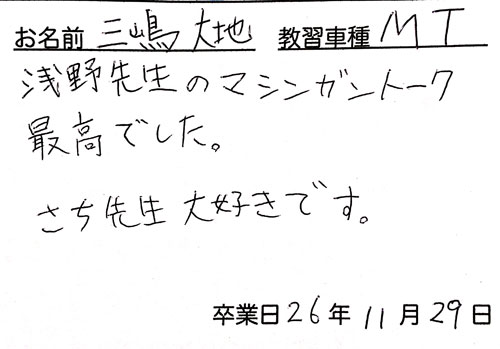 お名前 三嶋 大地 教習車種 MT
浅野先生のマシンガントーク
最高でした。
さち先生大好きです。
卒業日26年11月29日